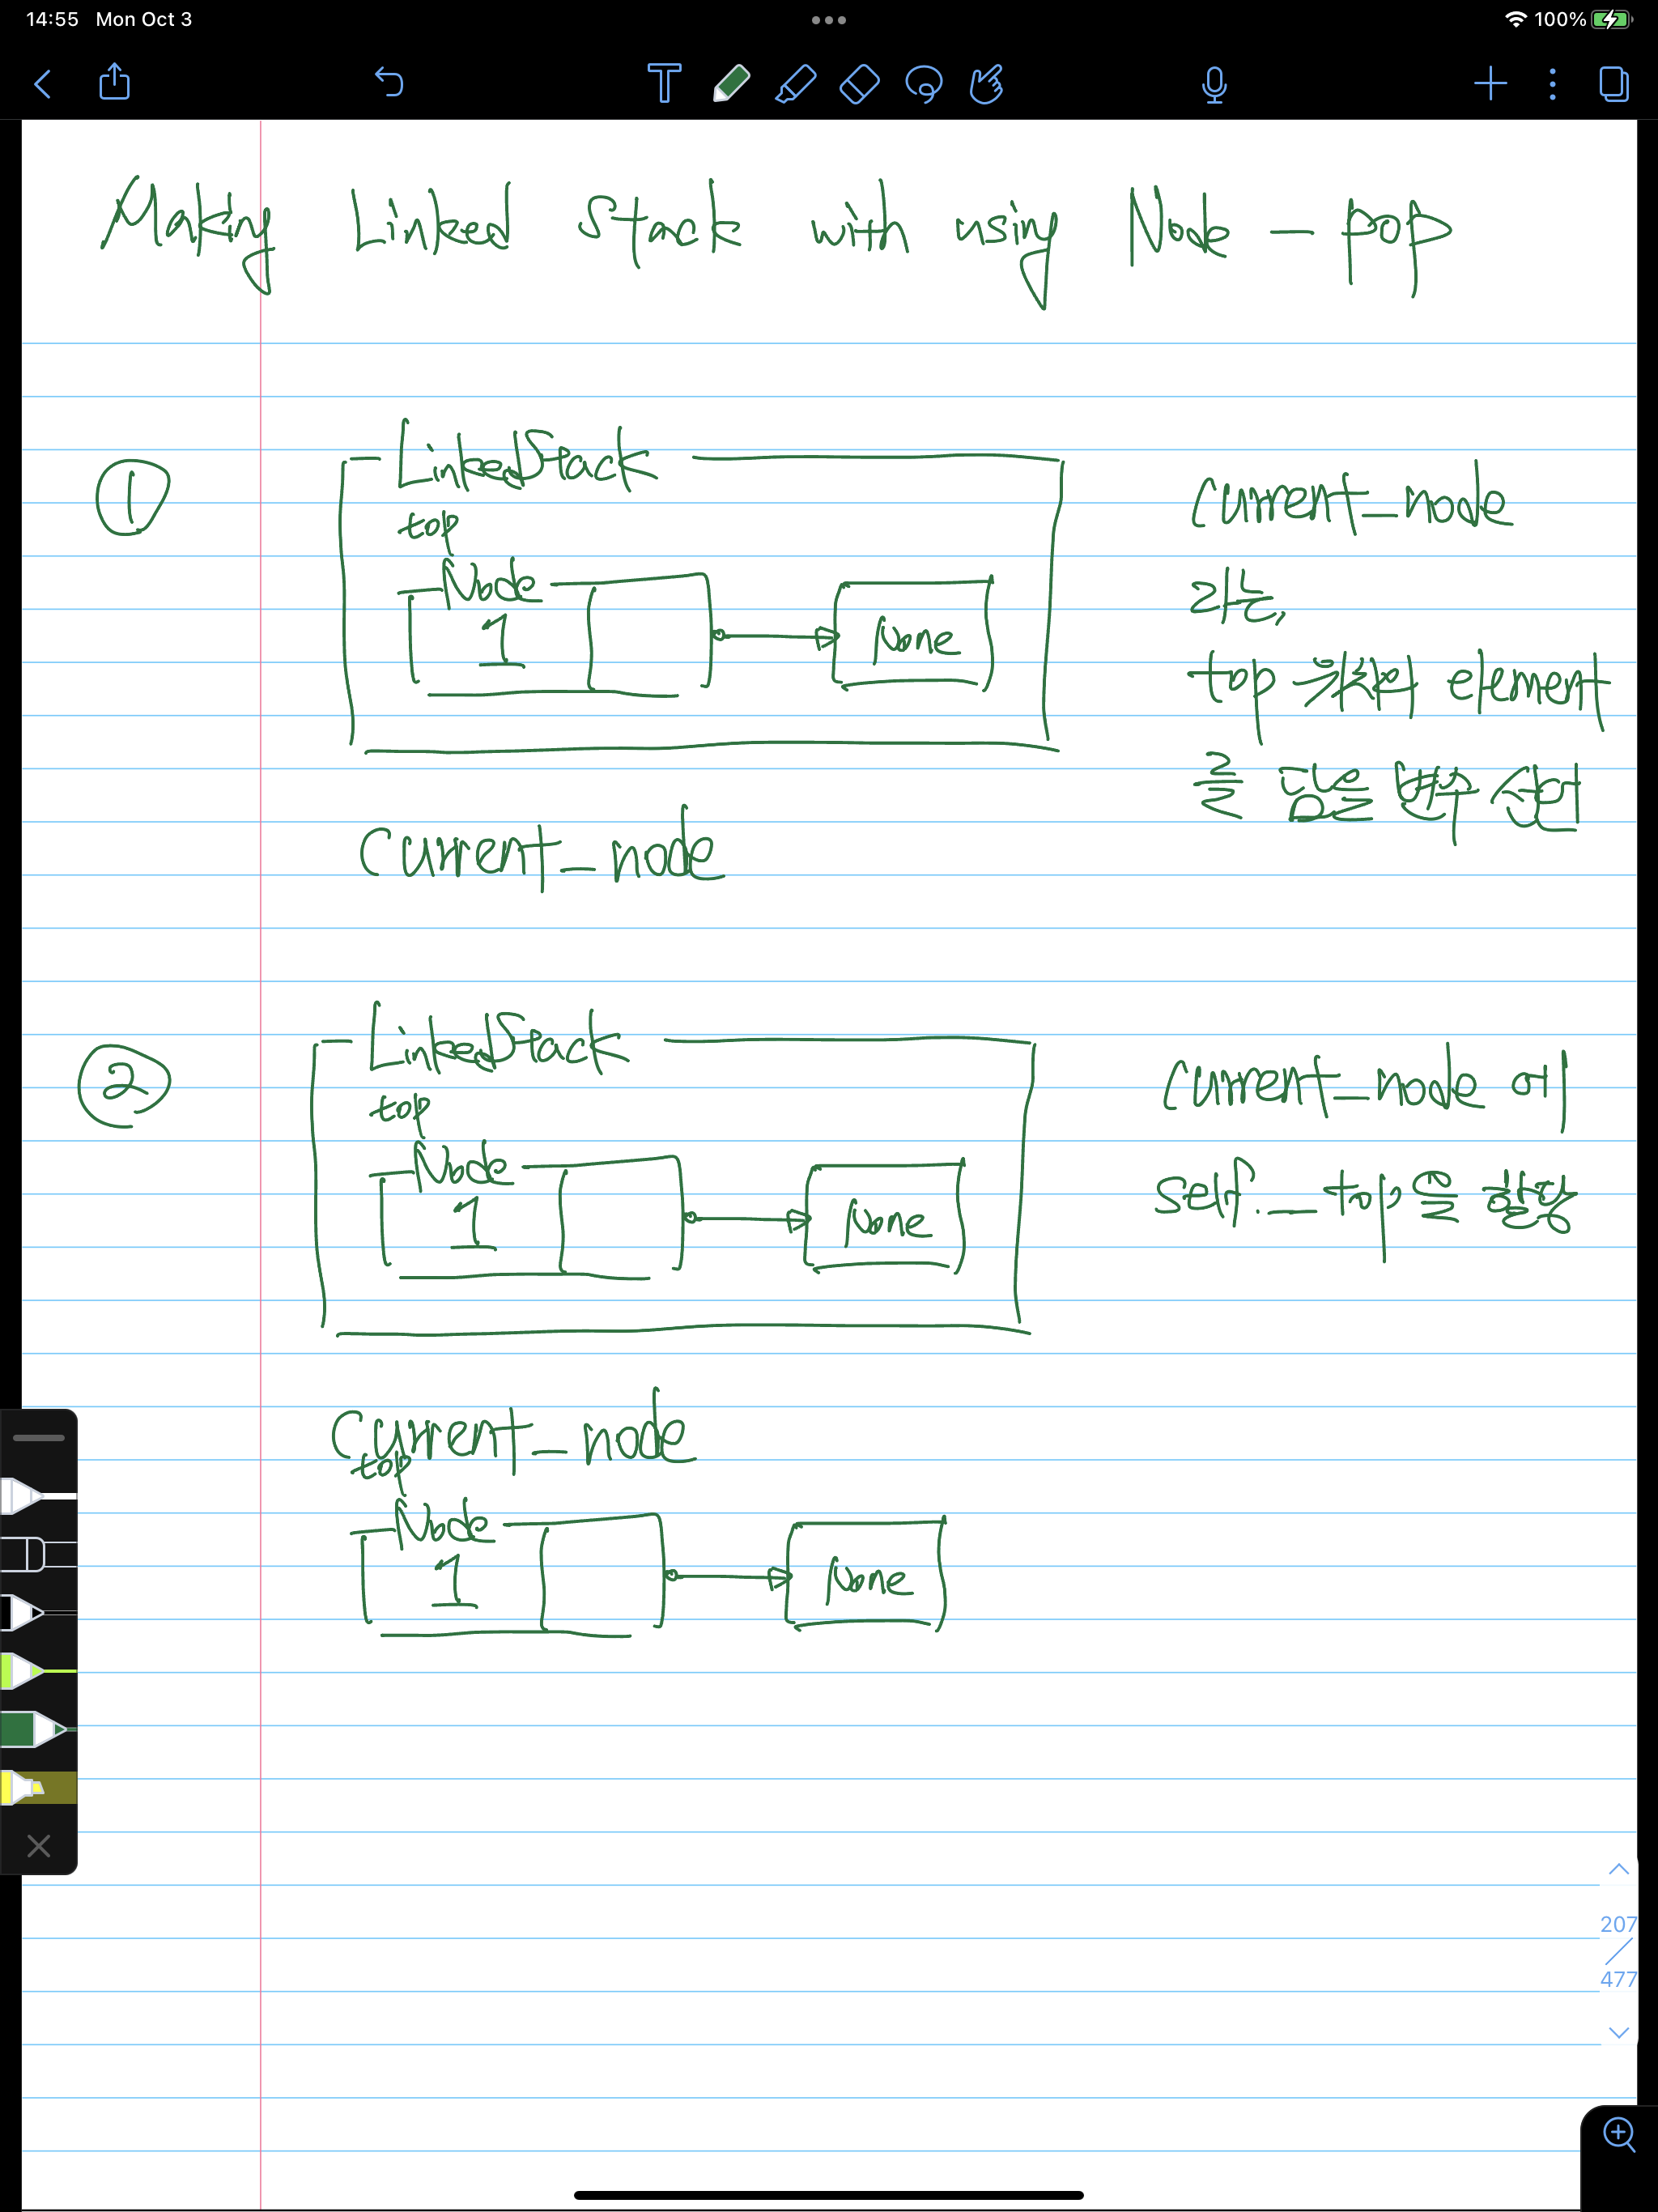 14:55 Mon Oct 3
100%
Making Linked Stack with using Node - pop
1
LinkedStack
top
Node
1
None
current_node
라는,
top 객체의 element
를 받을 변수 선언
current_node
2
LinkedStack
top
Node
1
None
current_node 에
self.__top을 할당
current_node
top
Node
1
None
207
477